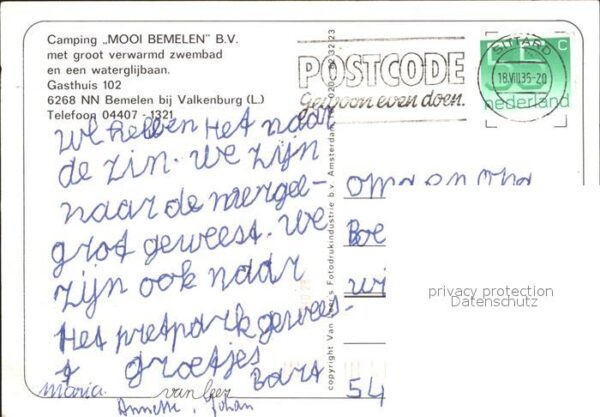 Camping „MOOI BEMELEN" B.V.
met groot verwarmd zwembad
en een waterglijbaan.
Gasthuis 102
6268 NN Bemelen bij Valkenburg (L.)
Telefoon 04407 - 1321
POSTCODE
gewoon even doen.
SITTARD
C
nederland
We hebben Het naar
de zin. We zijn
naar de mergel-
grot geweest. We
zijn ook naar
Het pretpark gewees-
t groetjes
Bart
Maria. van leer
Annette, Johan
copyright Van Leer's Fotodrukindustrie b.v. Amsterdam
oma en opa
Boe
wi
54
privacy protection
Datenschutz